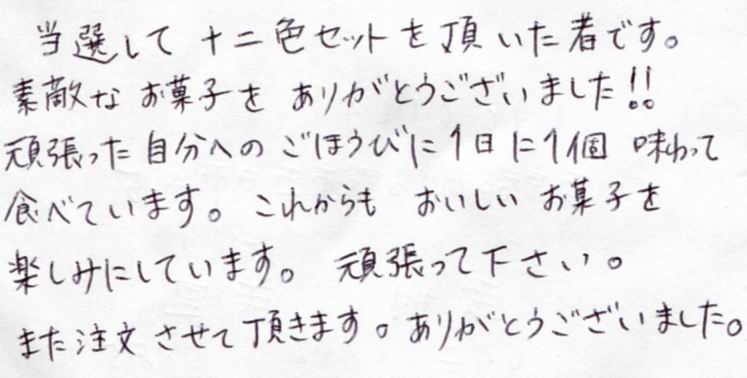 当選して十二色セットを頂いた者です。
素敵なお菓子を ありがとうございました!!
頑張った自分へのごほうびに1日に1個 味わって
食べています。これからも おいしいお菓子を
楽しみにしています。 頑張って下さい。
また注文させて頂きます。ありがとうございました。